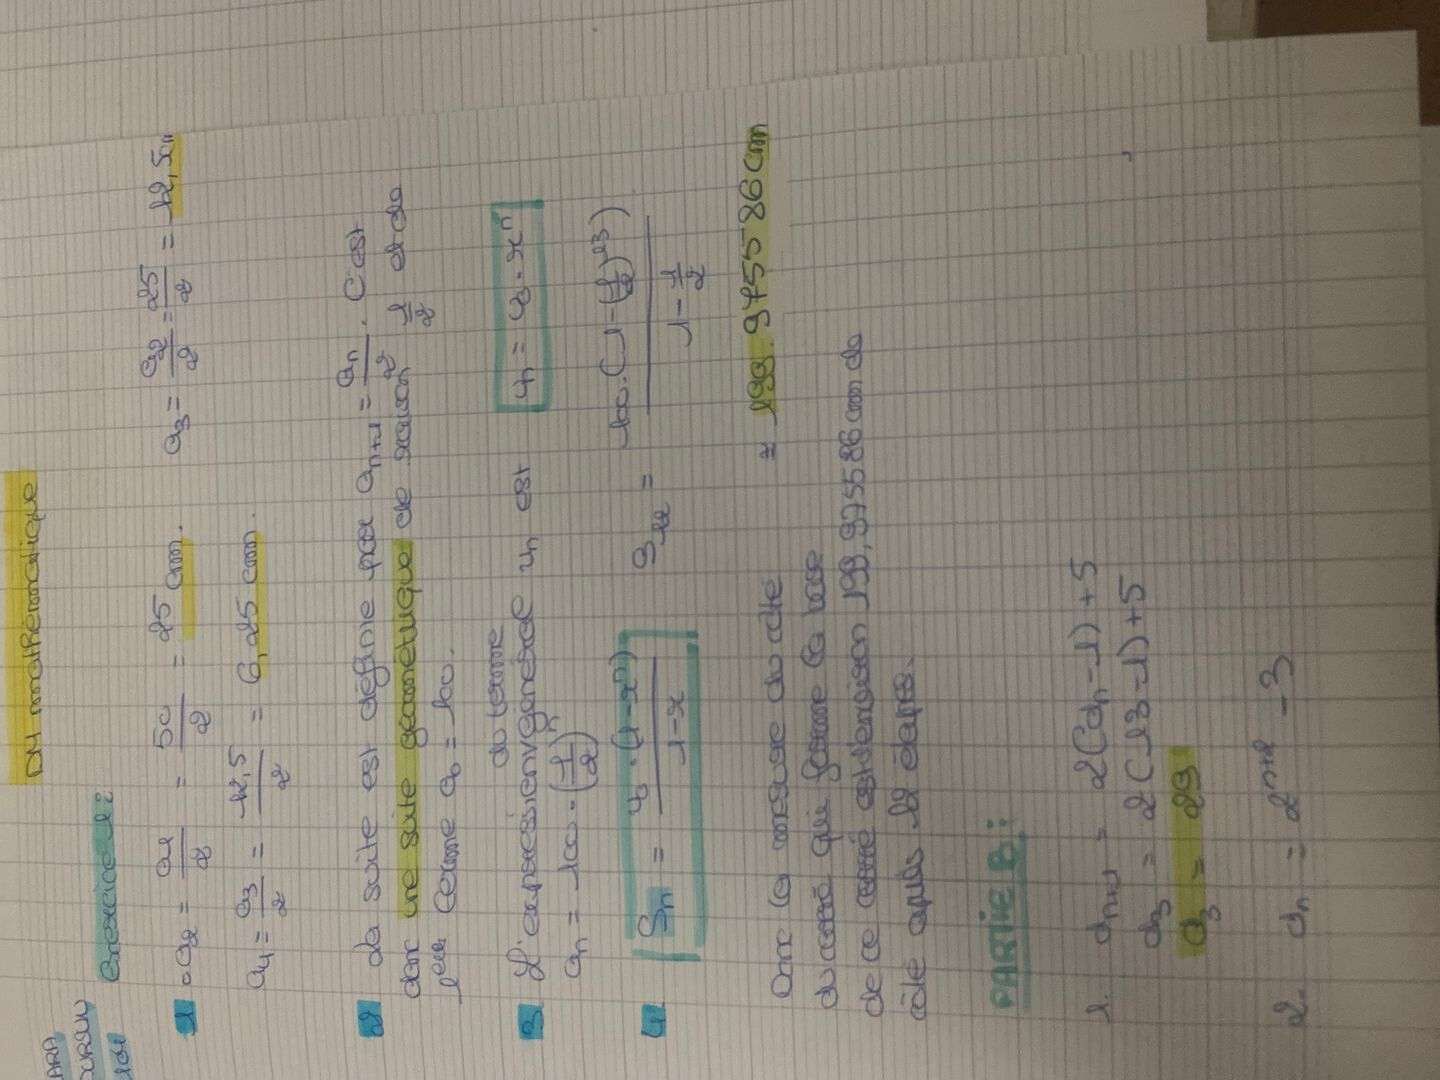 DM mathématique
ARA
Exercice 1:
1 • a₂ = a₁/2 = 50/2 = 25 cm. a₃ = a₂/2 = 25/2 = 12,5cm
a₄ = a₃/2 = 12,5/2 = 6,25 cm.
2 La suite est définie par aₙ₊₁ = aₙ/2. C'est
donc une suite géométrique de raison 1/2 et de
1er terme a₀ = 100.
du terme
3 L'expression général uₙ est uₙ = u₀ · xⁿ
aₙ = 100 · (1/2)ⁿ
4 Sₙ = u₀ · (1 - xⁿ) / 1 - x S₁₂ = 100 · (1 - (1/2)¹³) / 1 - 1/2
≈ 199.975586 cm
Donc la mesure du côté
du carré qui forme la base
de ce carré est d'environ 199,975586 cm de
côté après 12 étapes.
PARTIE B:
1. dₙ₊₁ = 2(dₙ - 1) + 5
d₃ = 2(13 - 1) + 5
d₃ = 29
2. dₙ = 2ⁿ⁺² - 3